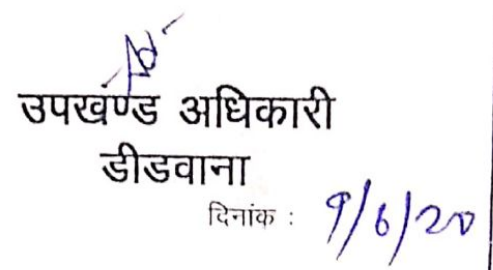 उपखण्ड अधिकारी
डीडवाना
दिनांक : 9/6/20